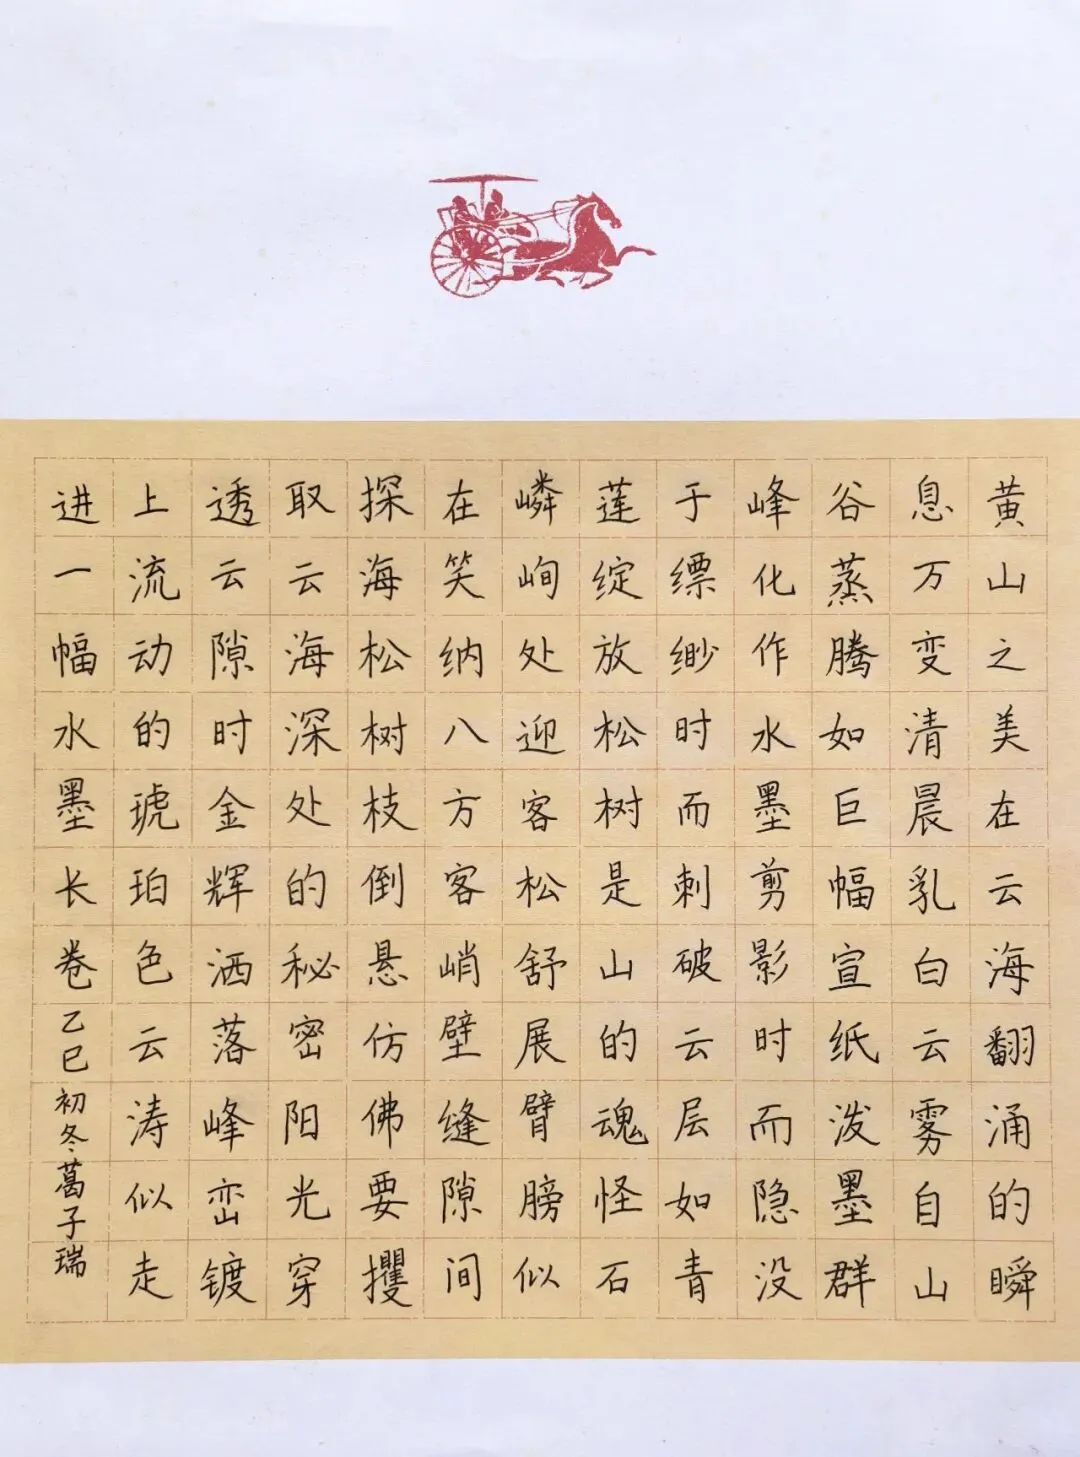 黄山之美在云海翻涌的瞬
息万变清晨乳白云雾自山
谷蒸腾如巨幅宣纸泼墨群
峰化作水墨剪影时而隐没
于缥缈时而刺破云层如青
莲绽放松树是山的魂怪石
嶙峋处迎客松舒展臂膀似
在笑纳八方客峭壁缝隙间
探海松树枝倒悬仿佛要攫
取云海深处的秘密阳光穿
透云隙时金辉洒落峰峦镀
上流动的琥珀色云涛似走
进一幅水墨长卷乙巳初冬葛子瑞